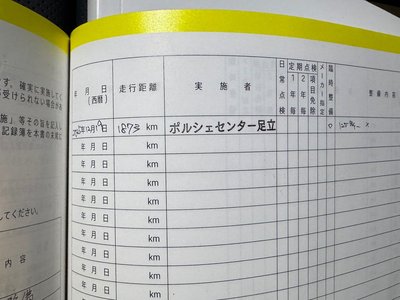 す、確実に実施してく
が受けられない場合が
施」等その旨を記入し
記録簿を本書の末尾に
してください。
内容
年 月 日
(西暦)
走行距離
実施者
日常点検
定期点検
1年毎
2年毎
項目免除
メーカー指定
臨時整備
整備内容
年12月19日 1873 km ポルシェセンター足立
年 月 日 km
年 月 日 km
年 月 日 km
年 月 日 km
年 月 日 km
年 月 日 km
年 月 日 km
年 月 日 km
年 月 日 km
年 月 日 km